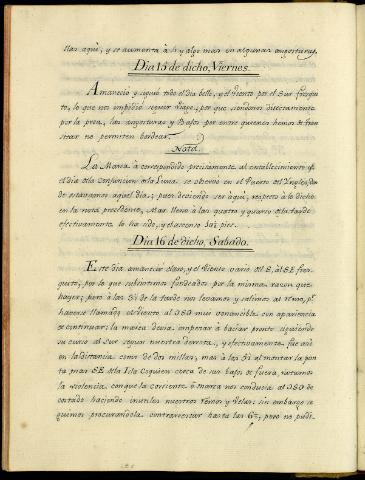 llas aqui, y se aumenta à 4 y algo mas en algunas angosturas.
Dia 15 de dicho, Viernes.
Amaneció y siguió todo el dia bello, y el Viento por el Sur fresqui-
to, lo que nos impidió seguir Viage, por que siendonos directamente
por la proa, las angosturas y Bajos por entre quienes hemos de tran-
sitar no permiten bordear.
Nota.
La Marea à correspondido precisamente al establecimiento
el dia de la Conjuncion de la Luna se observó en el Puerto del Ingles, don-
de estavamos aquel dia; pues deviendo ser aqui, respeto à lo dicho
en la nota precedente, Mar llena à las quatro y quarto de la tarde
efectivamente lo ha sido, y el ascenso 18½ pies.
Dia 16 de dicho, Sabado.
Este dia amaneció claro, y el Viento varió del S, al SE fres-
quito, por lo que subsistimos fondeados por la misma razon que
hayer; pero à las 3½ de la tarde nos levamos y salimos al remo, pr.
haverse llamado el viento al OSO mui vonancible con apariencia
de continuar: la marea devia empezar à bajar pronto siguiendo
su curso al Sur segun nuestra derrota, y efectivamente fue asi
en la distancia como de dos millas; mas à las 5½ al montar la pun-
ta mas SE de la Isla Coquien cerca de sus bajos de fuera, notamos
la violencia con que la corriente ò marea nos conducia al OSO de
costado haciendo inutiles nuestros remos y Velas: sin embargo se-
guimos procurandola contrarrestar hasta las 6½, pero no pudi-